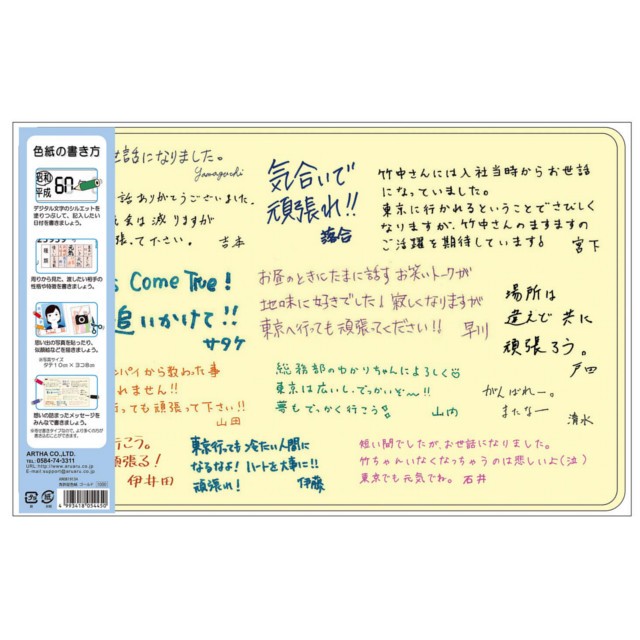 色紙の書き方
昭和
平成
デジタル文字のシルエットを
塗りつぶして、記入したい
日付を書きましょう。
周りから見た、渡したい相手の
性格や特徴を書きましょう。
思い出の写真を貼ったり、
似顔絵などを描きましょう。
※写真サイズ
タテ10cm×ヨコ8cm
想いの詰まったメッセージを
みんなで書きましょう。
ARTHA CO.,LTD.
TEL. 0584-74-3311
URL http://www.aruaru.co.jp
E-mail support@aruaru.co.jp
4 993418 054450
世話になりました。
Yamaguchi
話ありがとうございました。
会は減りますが
張って下さい。 吉本
気合いで
頑張れ!!
落合
竹中さんには入社当時からお世話
になっていました。
東京に行かれるということでさびしく
なりますが、竹中さんのますますの
ご活躍を期待しています! 宮下
s Come True!
追いかけて!!
サタケ
お昼のときにたまに話すお笑いトークが
地味に好きでした♪寂しくなりますが
東京へ行っても頑張ってください!! 早川
場所は
違えど共に
頑張ろう。
戸田
パイから教わった事
れません!!
行っても頑張って下さい!!
山田
総務部のゆかりちゃんによろしく
東京は広いし、でっかいぞ〜!!
夢もでっかく行こう 山内
がんばれー。
またなー
清水
行こう。
頑張る!
伊井田
東京行っても冷たい人間に
なるなよ!ハートを大事に!!
頑張れ! 伊藤
短い間でしたが、お世話になりました。
竹ちゃんいなくなっちゃうのは悲しいよ(泣)
東京でも元気でね。 石井